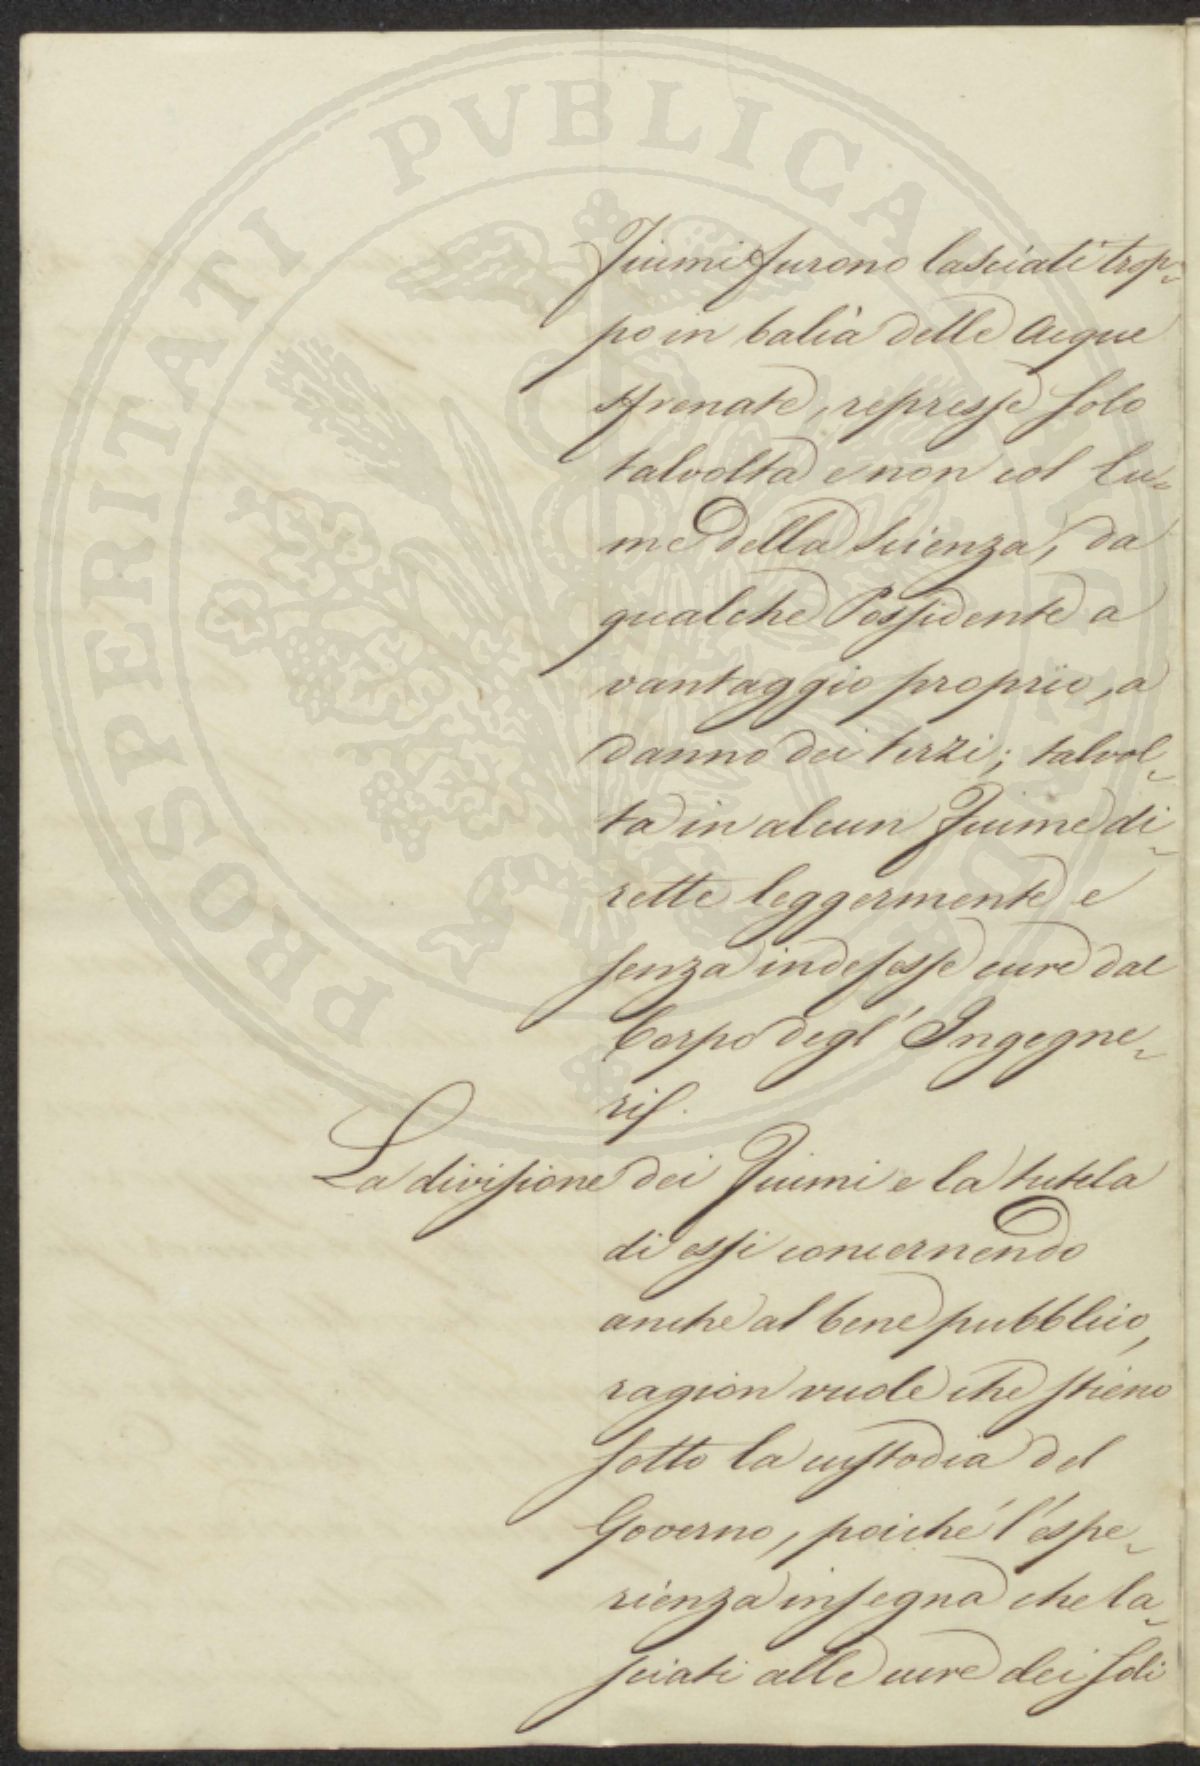 PROSPERITATI PVBLICAE
Fiumi furono lasciati trop-
po in balìa delle Acque
sfrenate, represse solo
talvolta e non col lu-
me della Scienza, da
qualche Possidente a
vantaggio proprio, a
danno dei terzi; talvol-
ta in alcun Fiume di-
rette leggermente e
senza indefesse cure dal
Corpo degl' Ingegne-
ri.
La divisione dei Fiumi e la tutela
di essi concernendo
anche al bene pubblico,
ragion vuole che stieno
sotto la custodia del
Governo, poiché l'espe-
rienza insegna che la-
sciati alle cure dei soli